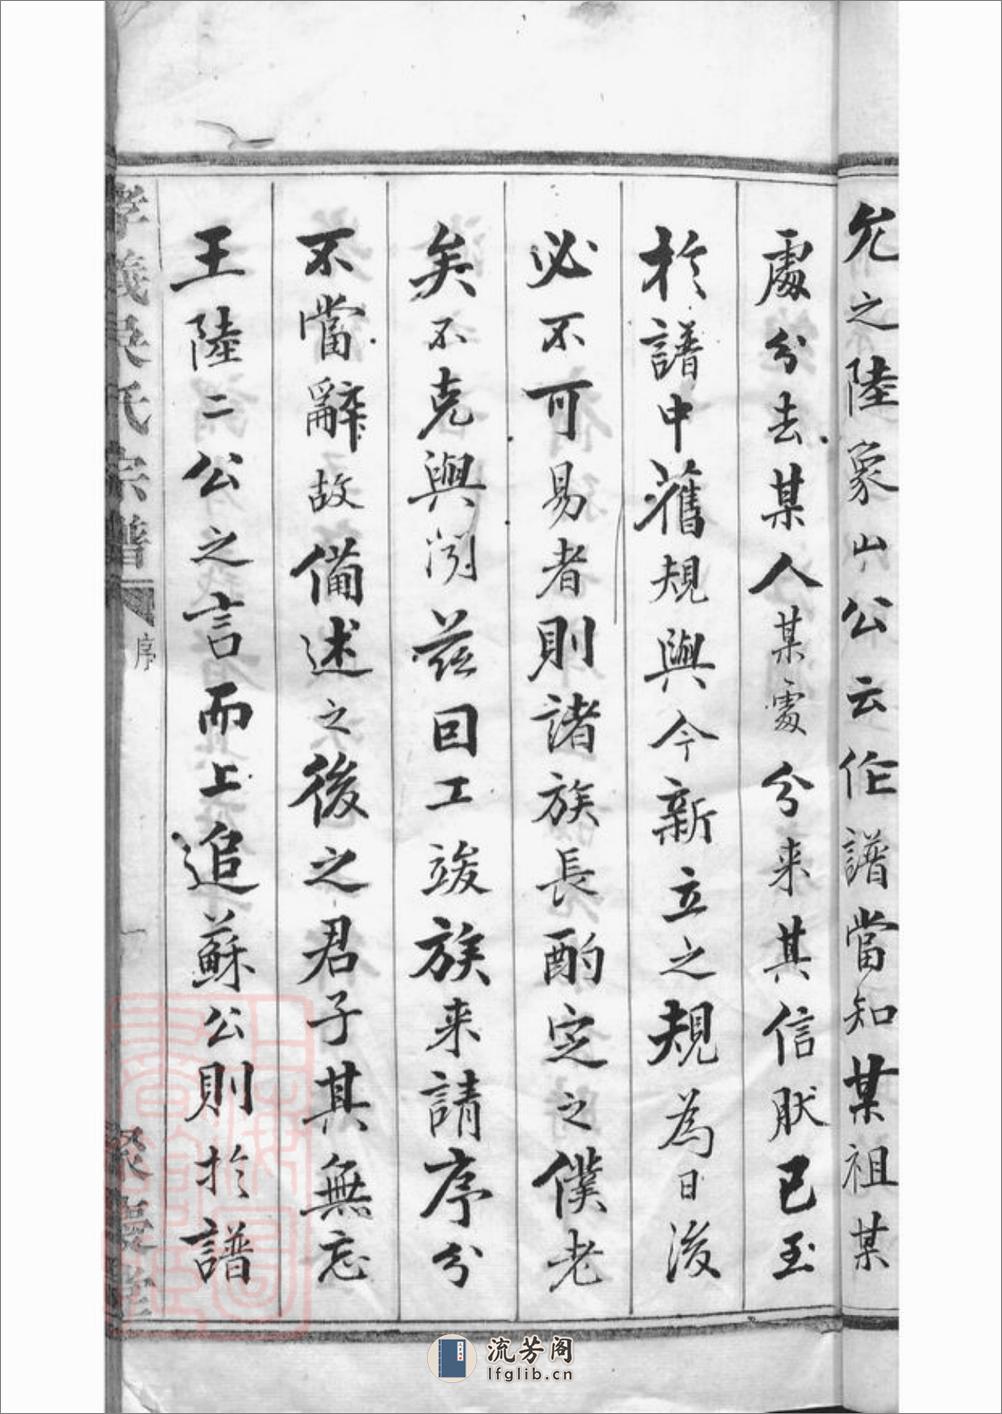 允之陸象山公云作譜當知某祖某
處分去某人某處分来其信肰已玉
於譜中舊規與今新立之規為日後
必不可易者則諸族長酌定之僕老
矣不克與閱茲回工竣族来請序分
不當辭故備述之後之君子其無忘
王陸二公之言而上追蘇公則於譜
孝義吳氏宗譜
序
聚慶堂
流芳阁
lfglib.cn